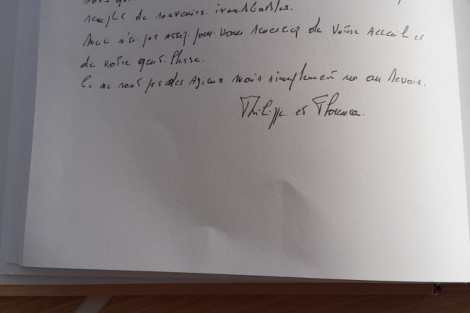 de souvenirs inoubliables.
pas assez pour vous remercier de votre accueil et
de votre gentillesse.
Ce ne sont pas des adieux mais simplement un au revoir.
Philippe et Florence.